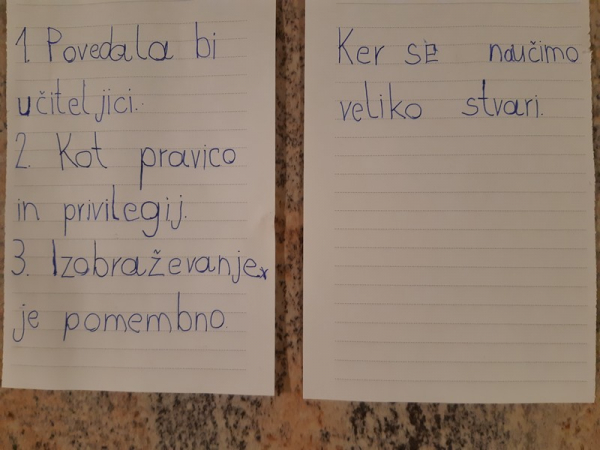 1. Povedala bi
učiteljici.
2. Kot pravico
in privilegij.
3. Izobraževanje
je pomembno.
Ker se naučimo
veliko stvari.